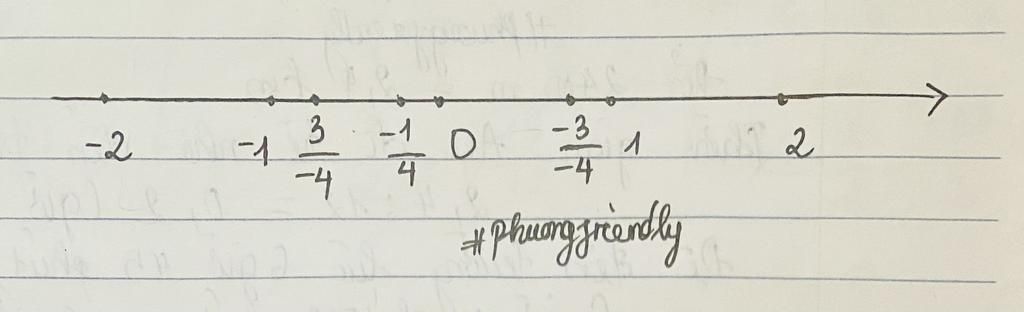 -2 -1 3/-4 -1/4 0 -3/-4 1 2
#phuongfriendly